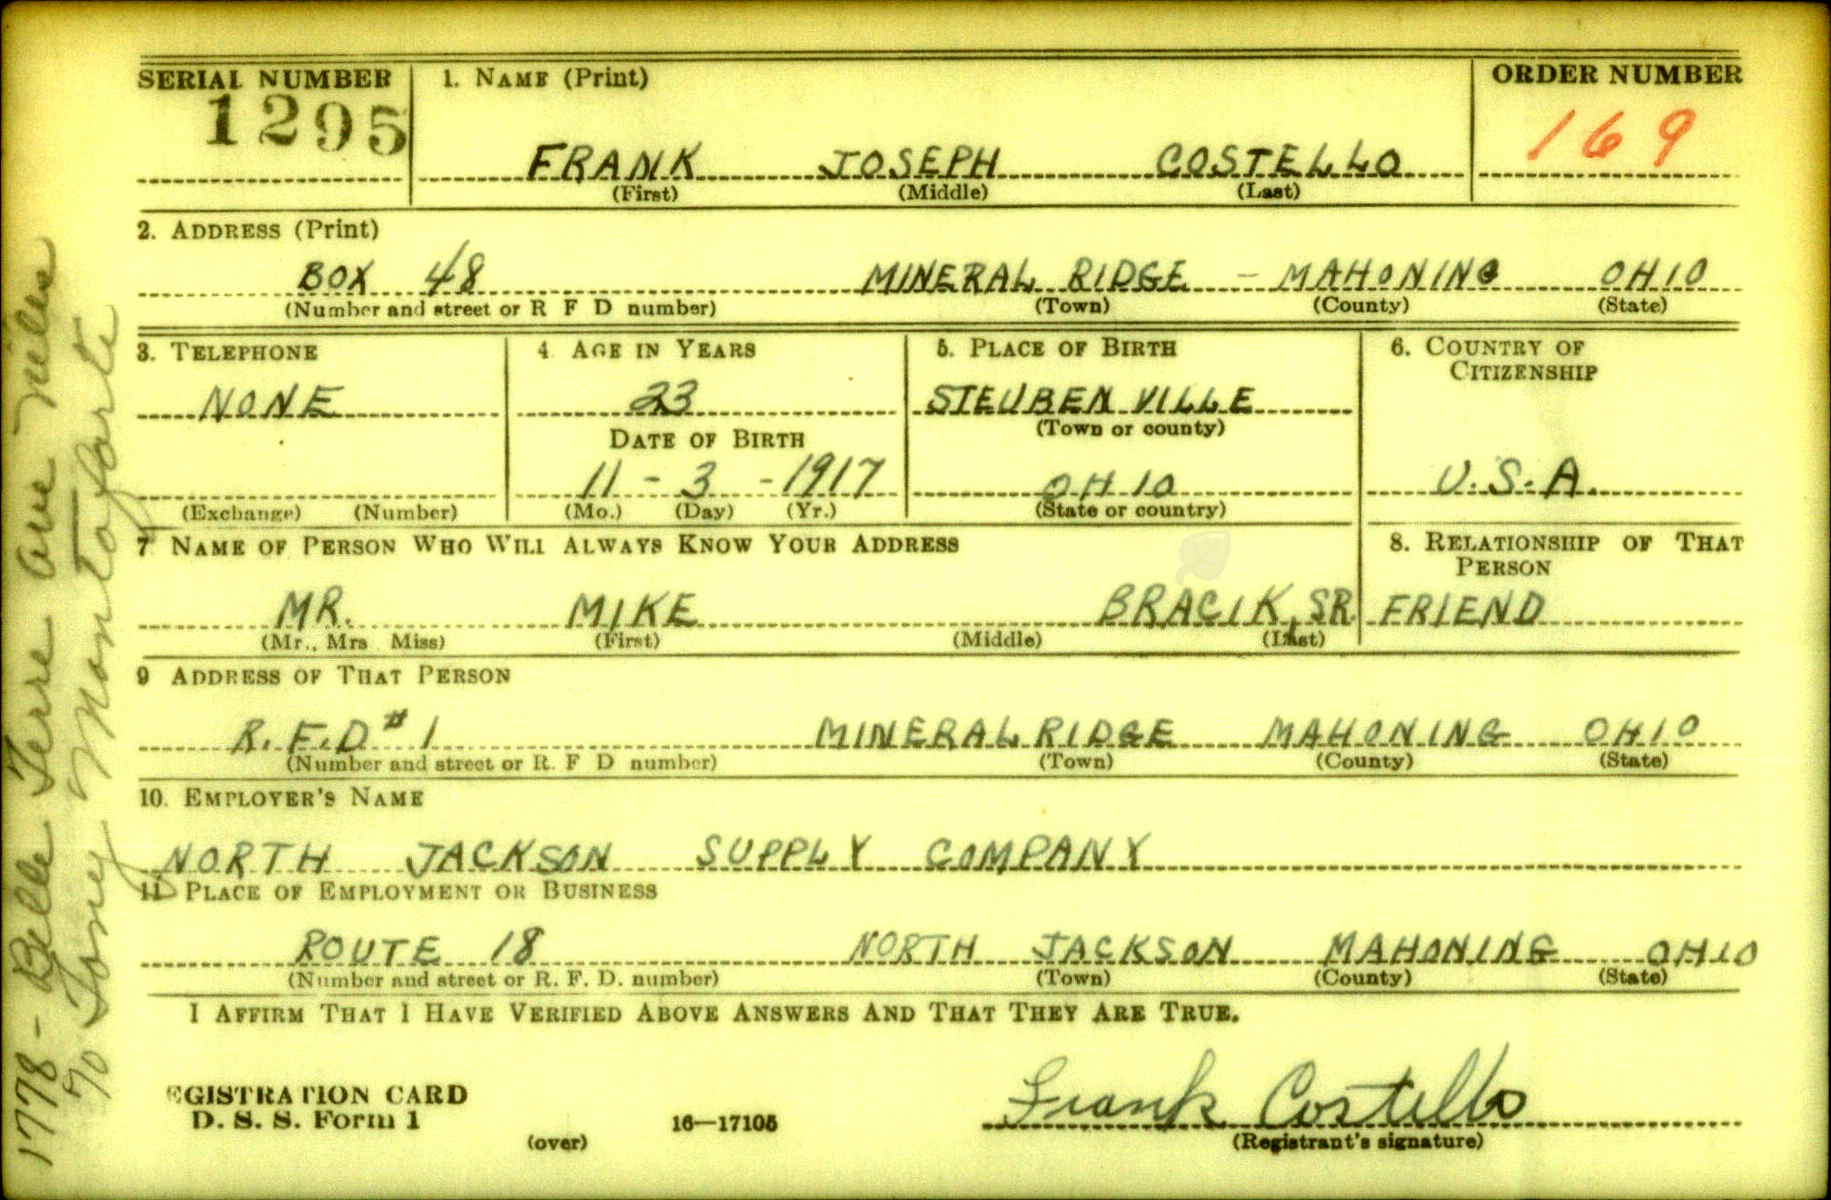 SERIAL NUMBER
1295
1. NAME (Print)
FRANK JOSEPH COSTELLO
(First) (Middle) (Last)
ORDER NUMBER
169
2. ADDRESS (Print)
BOX 48 MINERAL RIDGE - MAHONING OHIO
(Number and street or R F D number) (Town) (County) (State)
3. TELEPHONE
NONE
(Exchange) (Number)
4 AGE IN YEARS
23
DATE OF BIRTH
11 - 3 - 1917
(Mo.) (Day) (Yr.)
5. PLACE OF BIRTH
STEUBENVILLE
(Town or county)
OHIO
(State or country)
6. COUNTRY OF
CITIZENSHIP
U.S.A.
7 NAME OF PERSON WHO WILL ALWAYS KNOW YOUR ADDRESS
MR. MIKE BRACIK, SR.
(Mr., Mrs Miss) (First) (Middle) (Last)
8. RELATIONSHIP OF THAT
PERSON
FRIEND
9 ADDRESS OF THAT PERSON
R.F.D #1 MINERAL RIDGE MAHONING OHIO
(Number and street or R. F D number) (Town) (County) (State)
10. EMPLOYER'S NAME
NORTH JACKSON SUPPLY COMPANY
11 PLACE OF EMPLOYMENT OR BUSINESS
ROUTE 18 NORTH JACKSON MAHONING OHIO
(Number and street or R. F. D. number) (Town) (County) (State)
I AFFIRM THAT I HAVE VERIFIED ABOVE ANSWERS AND THAT THEY ARE TRUE.
EGISTRATION CARD
D. S. S. Form 1
(over)
16—17105
Frank Costello
(Registrant's signature)
1778 - Belle Terre ave Niles
% Tony Montoforte